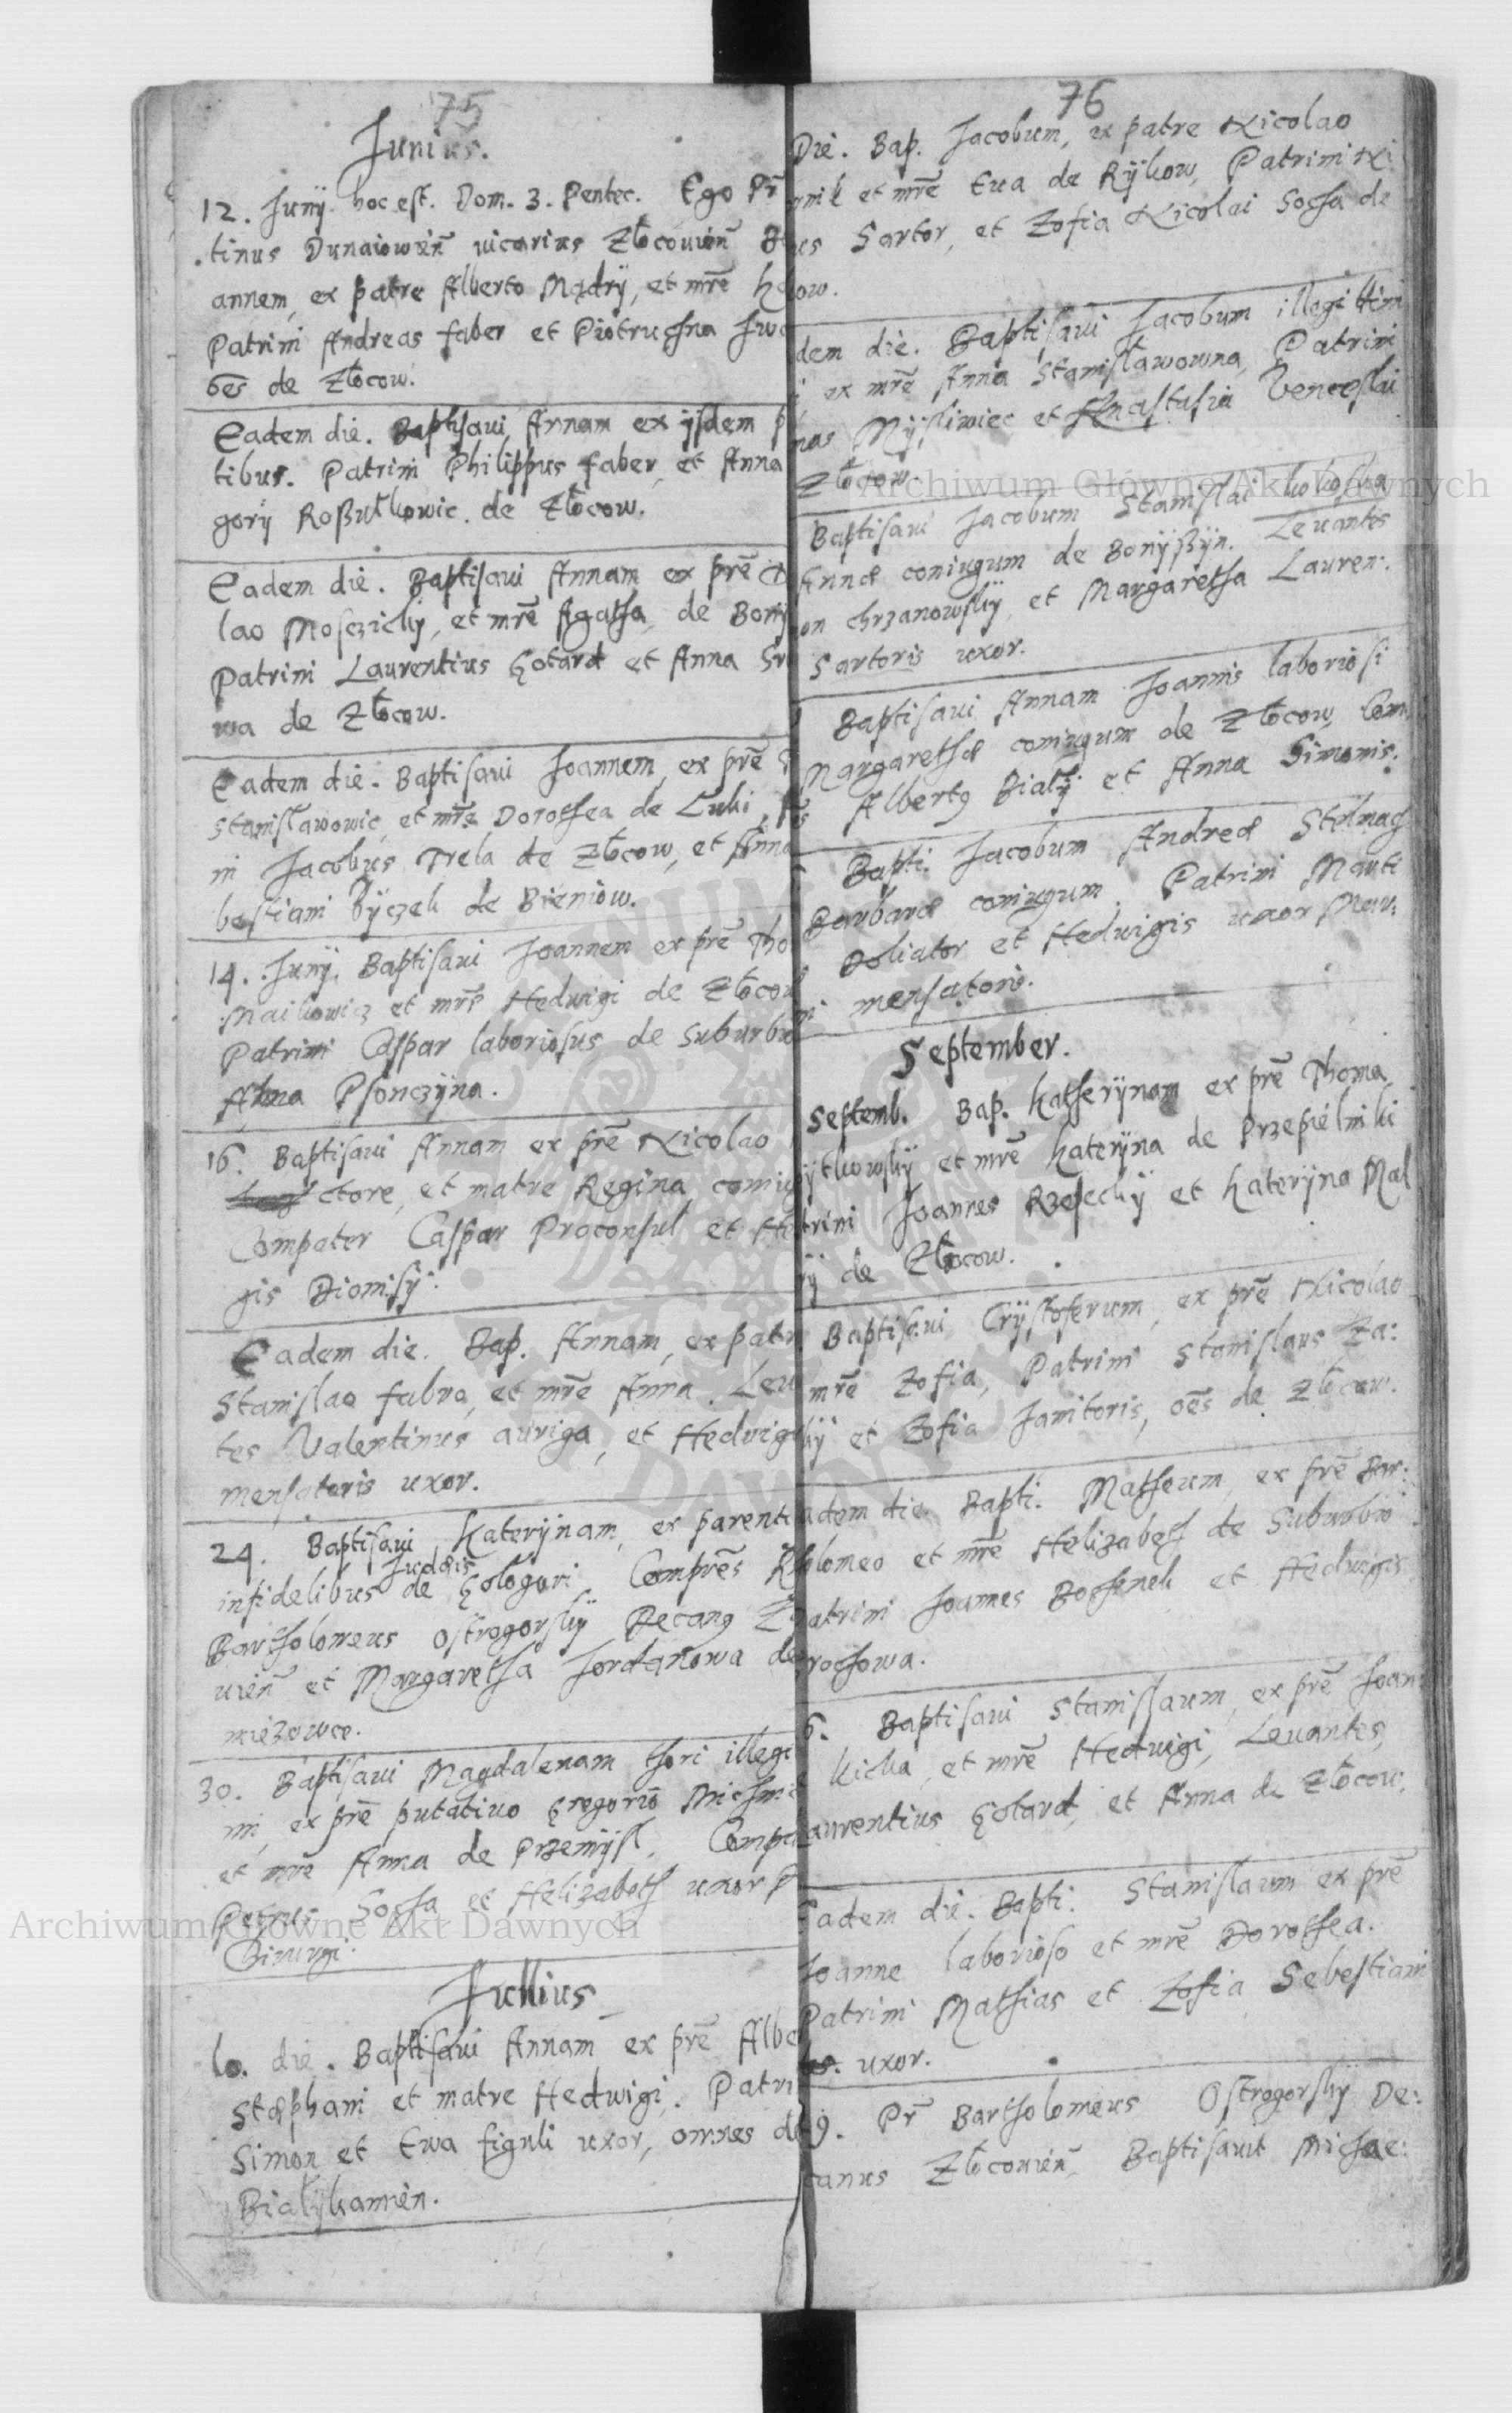 75
Junius.
12. Junÿ. hoc est. Dom. 3. Pentec. Ego Pr̃
tinus Dunaiowieñ vicarius Złocouieñ
annem, ex patre Alberto Mądrÿ, et mr̃e
Patrini Andreas faber et Piotruchna Iw
oẽs de Złocow.
Eadem die. Baptisaui Annam ex ÿsdem p
tibus. Patrini Philippus faber, et Anna
gorÿ Roßułkowic. de Złocow.
Eadem die. Baptisaui Annam ex pr̃e
lao Mosczickÿ, et mr̃e Agatha, de Bonÿ
Patrini Laurentius Gotard et Anna
wa de Złocow.
Eadem die. Baptisaui Joannem, ex pr̃e
Stanisławowic, et mr̃e Dorothea de Luki,
ni Jacobus Trela de Złocow, et Anna
bestiani Bÿczek de Bieniow.
14. Junÿ. Baptisaui Joannem ex pr̃e Tho
Maikowicz et mr̃e Hedwigi de Złocow
Patrini Caspar laboriosus de Suburbio
Anna Psonczÿna.
16. Baptisaui Annam ex pr̃e Nicolao
ctore, et matre Regina, coniug
Compater Caspar Proconsul et He
gis Dionisÿ.
Eadem die. Bap. Annam, ex patr
Stanislao fabro, et mr̃e Anna. Leu
tes Valentinus auriga, et Hedwig
mensatoris uxor.
24. Baptisaui Katerÿnam, ex parenti
Judæis
infidelibus de Gologuri. Compr̃es
Bartholomeus Ostrogorskÿ Decanꝰ
uieñ et Margaretha Jordanowa de
miezowce.
30. Baptisaui Magdalenam thori illegi
mi, ex pr̃e putatiuo Gregorio Michni
et mr̃e Anna de Przemÿsl. Comp
Petrus Socha et Helizabeth uxor
Cirurgi.
Jullius
1o. die. Baptisaui Annam ex pr̃e Albe
Stæphani et matre Hedwigi. Patri
Simon et Ewa figuli uxor, omnes de
Białÿkamien.
76
Die. Bap. Jacobum, ex patre Nicolao
nnik et mr̃e Eua de Rÿkow, Patrini Ni
us Sartor, et Zofia Nicolai Socha de
ow.
dem die. Baptisaui Jacobum illegittimi
ex mr̃e Anna Stanisławowna, Patrini
nas Mÿsliwiec et Anastasia Venceslai
Złocow.
Baptisaui Jacobum Stanislai kokoska
Annæ coniugum de Bonÿßÿn. Leuantes
on Chrzanowskÿ, et Margaretha Lauren:
Sartoris uxor.
Baptisaui Annam Joannis laboriosi
Margarethæ coniugum de Złocow Com
Albertꝰ Białÿ et Anna Simonis.
Bapti. Jacobum Andreæ Stelmach
Barbaræ coniugum. Patrini Marti
Doliator et Hedwigis uxor
ni mensatoris.
September.
Septemb. Bap. Katherÿnam ex pr̃e Thoma
ÿtkowskÿ et mr̃e Katerÿna de Przepielniki
trini Joannes Rzesechÿ et Katerÿna Mal
rÿ de Złocow.
Baptisaui Crÿstoferum, ex pr̃e Nicolao
mr̃e Zofia, Patrini Stanislaus Za:
kÿ et Zofia Janitoris, oẽs de Złocow.
adem die. Bapti. Matheum, ex pr̃e Bar:
holomeo et mr̃e Helizabeth de Suburbio
atrini Joannes Bochenek et Hedwigis
rochowa.
6. Baptisaui Stanislaum, ex pr̃e Joan
kicka, et mr̃e Hedwigi, Leuantes,
aurentius Gotard, et Anna de Złocow.
Eadem die. Bapti. Stanislaum ex pr̃e
Joanne laborioso et mr̃e Dorothea.
Patrini Mathias et Zofia Sebestiani
uxor.
9. Pr̃ Bartholomeus Ostrogorskÿ De:
canus Złocouieñ Baptisauit Michae:
Archiwum Główne Akt Dawnych
Archiwum Główne Akt Dawnych